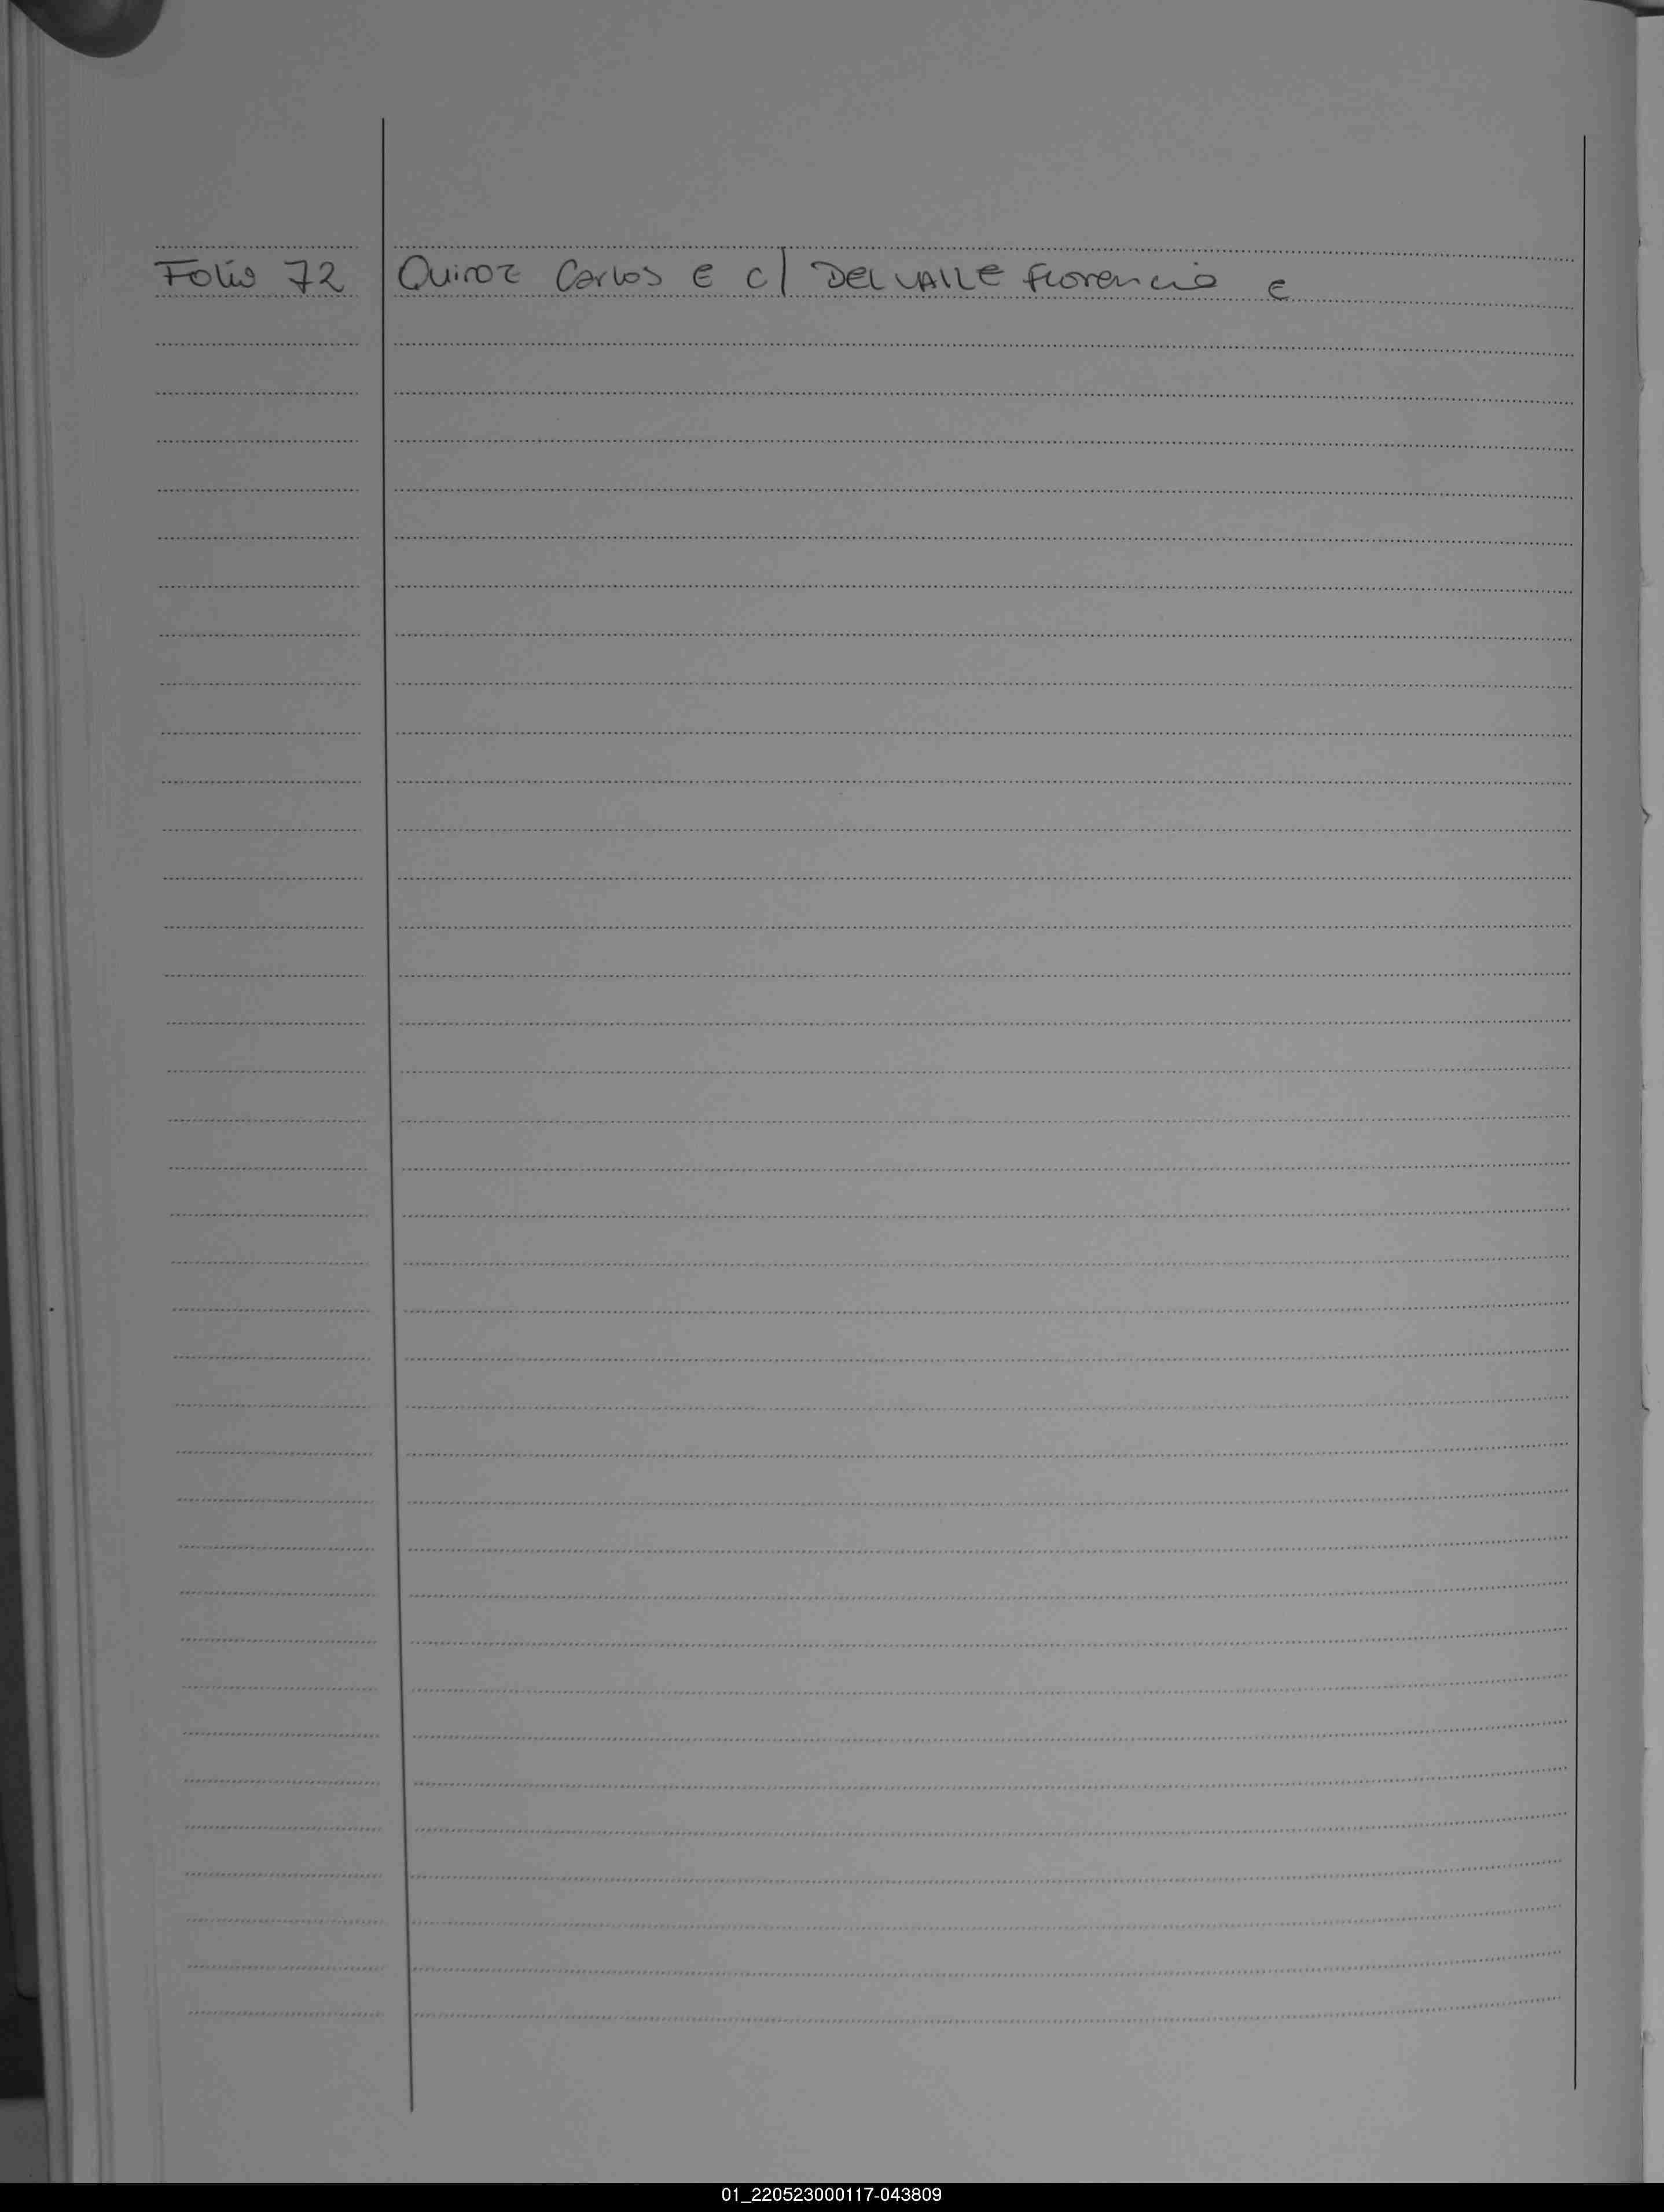 Folio 72 Quiroz Carlos E c/ DELVALLE Florencio E
01_220523000117-043809